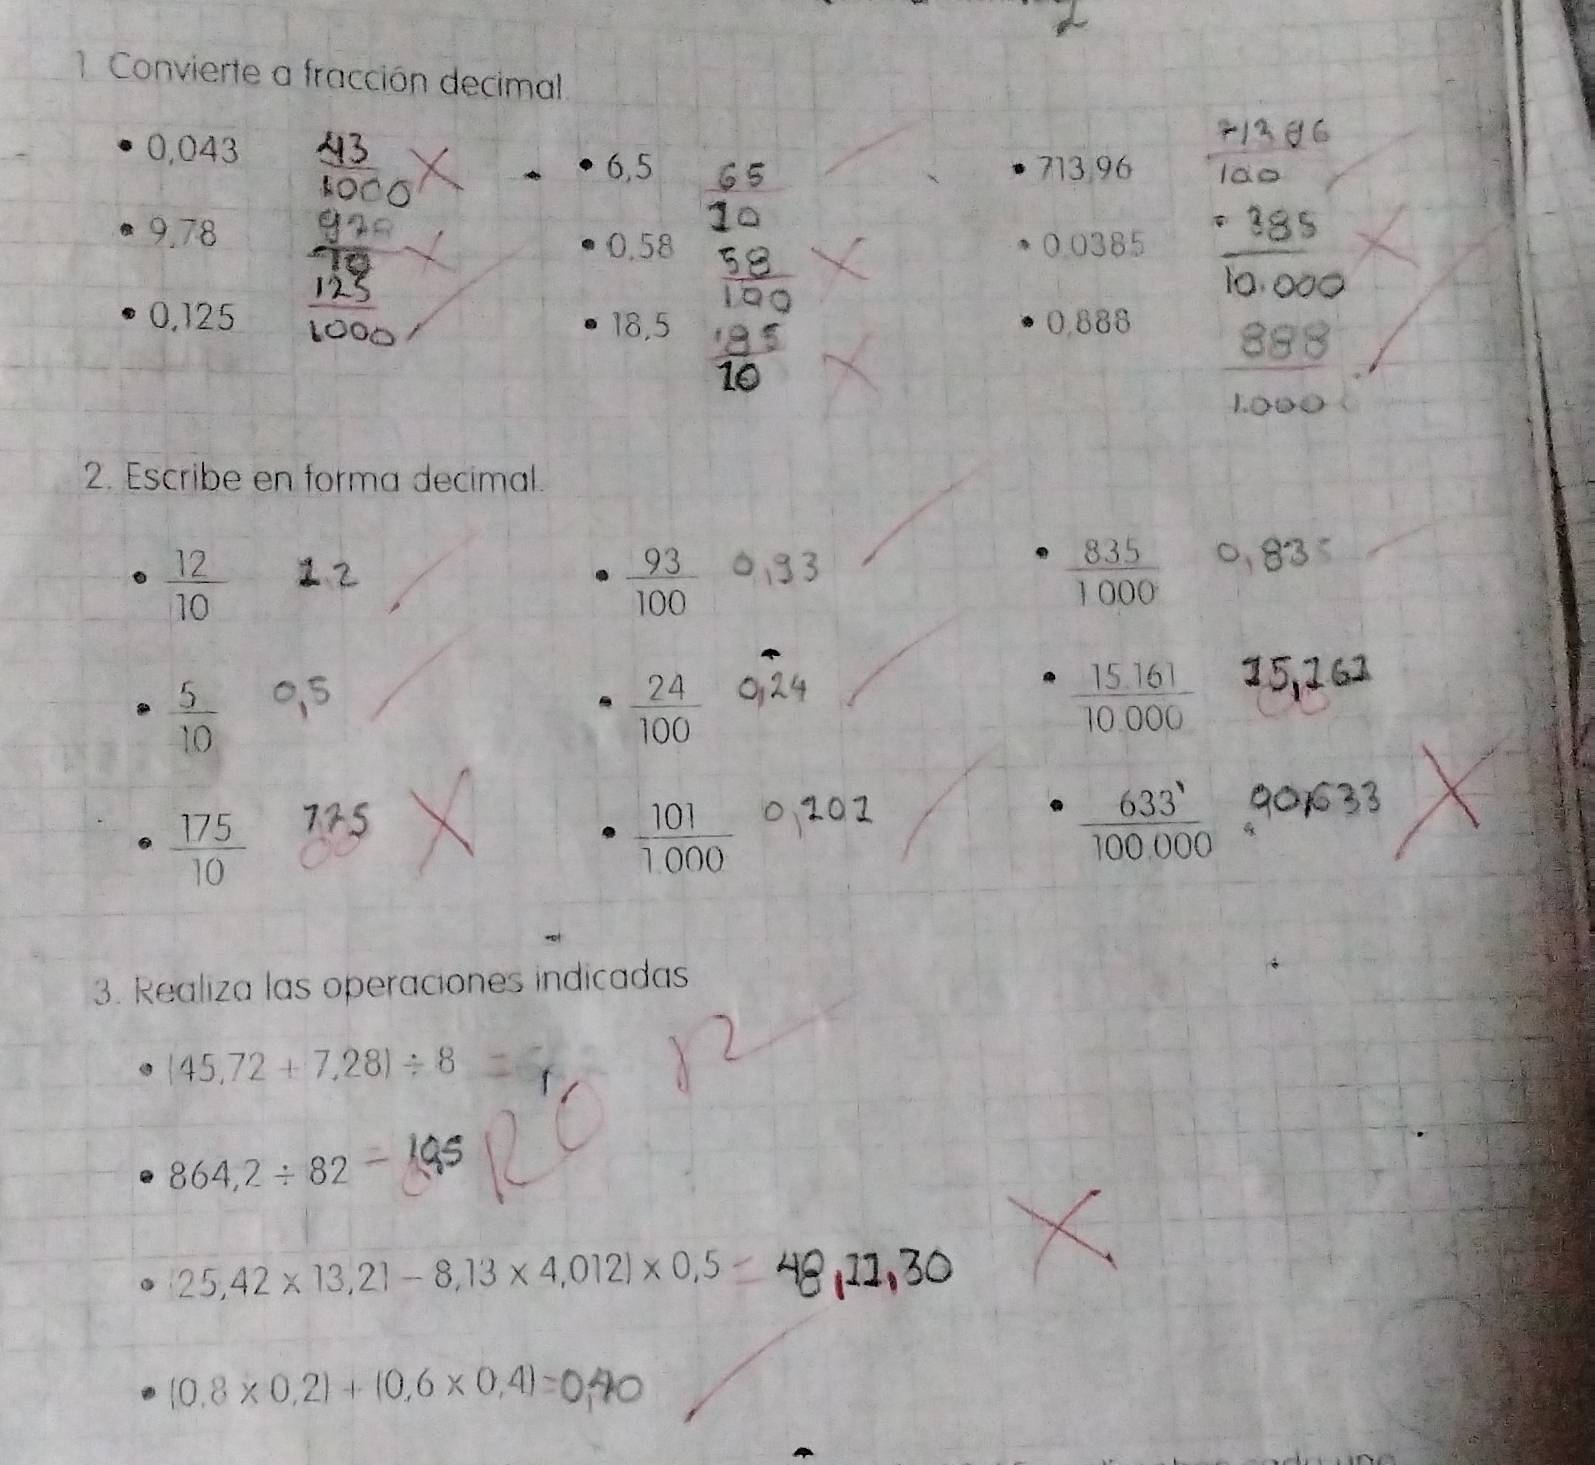 1 Convierte a fracción decimal
• 0,043 43/1000 • 6,5 65/10 • 713,96 71396/100
• 9,78 978/10 • 0,58 58/100 • 0,0385 385/10.000
• 0,125 125/1000 • 18,5 185/10 • 0,888 888/1.000
2. Escribe en forma decimal.
• 12/10 1.2 • 93/100 0,93 • 835/1000 0,835
• 5/10 0,5 • 24/100 0,24 • 15.161/10.000 15,161
• 175/10 • 101/1.000 0,101 • 633/100.000
3. Realiza las operaciones indicadas
• (45,72 + 7,28) ÷ 8 =
• 864,2 ÷ 82 =
• (25,42 x 13,21 - 8,13 x 4,012) x 0,5 = 48,11,30
• (0,8 x 0,2) + (0,6 x 0,4) = 0,40